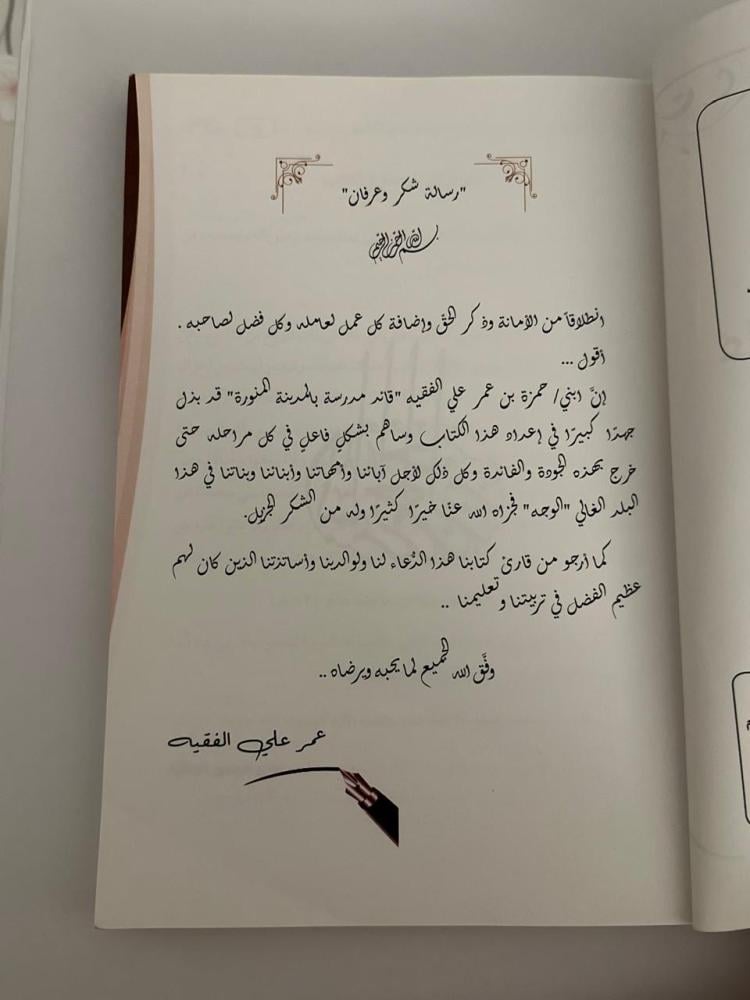 "رسالة شكر وعرفان"
بسم الله الرحمن الرحيم
انطلاقاً من الأمانة وذكر الحق وإضافة كل عمل لعامله وكل فضل لصاحبه .
أقول ...
إنَّ ابني/ حمزة بن عمر علي الفقيه "قائد مدرسة بالمدينة المنورة" قد بذل
جهدًا كبيرًا في إعداد هذا الكتاب وساهم بشكلٍ فاعلٍ في كل مراحله حتى
خرج بهذه الجودة والفائدة وكل ذلك لأجل آبائنا وأمهاتنا وأبنائنا وبناتنا في هذا
البلد الغالي "الوجه" فجزاه الله عنّا خيرًا كثيرًا وله من الشكر الجزيل.
كما أرجو من قارئ كتابنا هذا الدُعاء لنا ولوالدينا وأساتذتنا الذين كان لهم
عظيم الفضل في تربيتنا وتعليمنا ..
وفَّق الله الجميع لما يحبه ويرضاه ..
عمر علي الفقيه